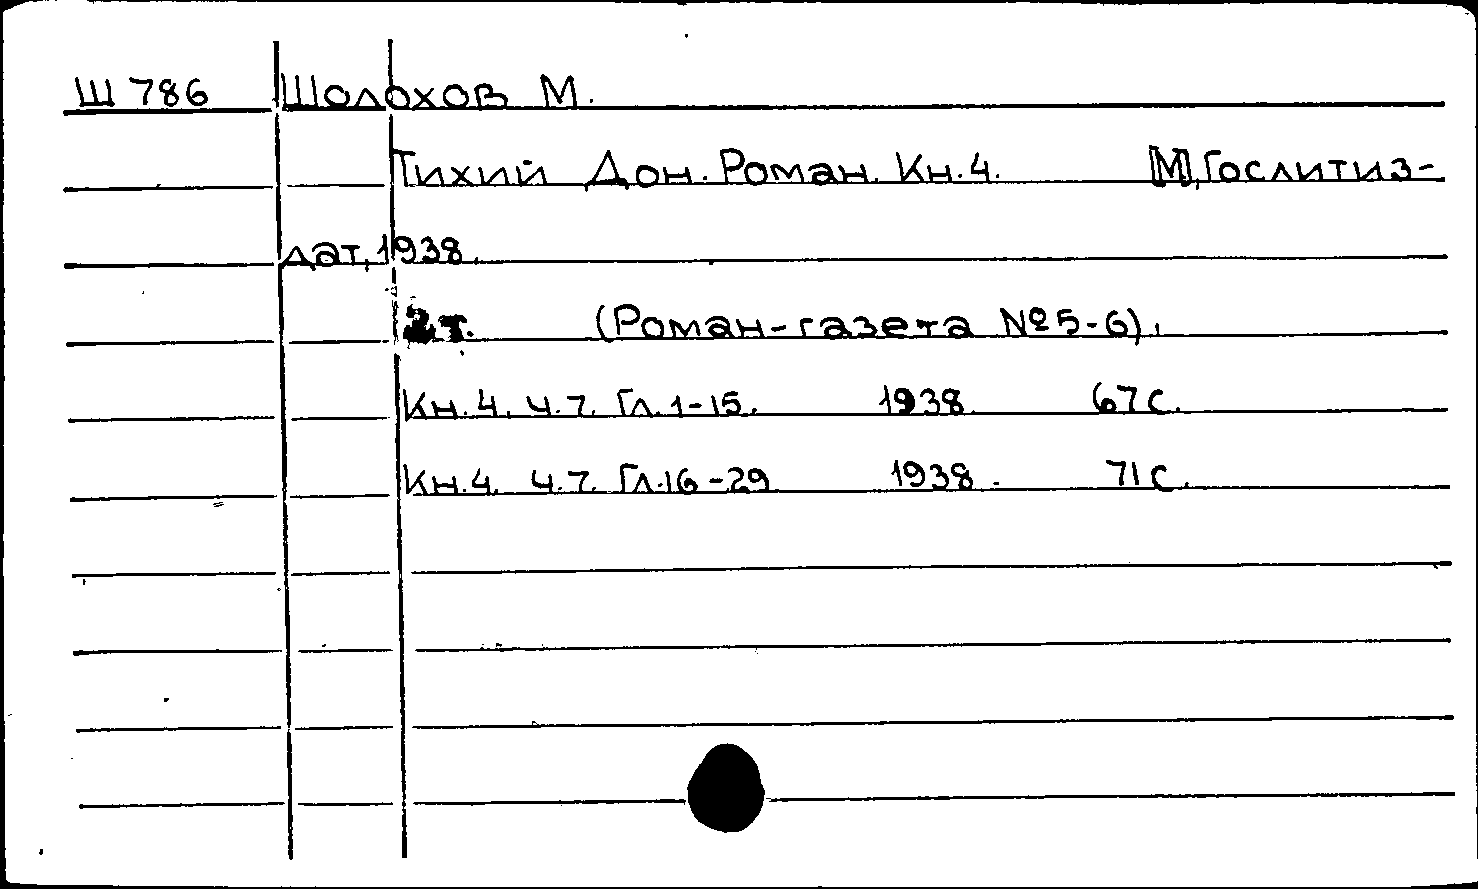 Ш 786 Шолохов М.
Тихий Дон. Роман. Кн.4. [М], Гослитиз-
дат, 1938.
2 т. (Роман-газета № 5-6).
Кн.4. ч.7. Гл.1-15. 1938. 67 с.
Кн.4. ч.7. Гл.16-29 1938. 71 с.